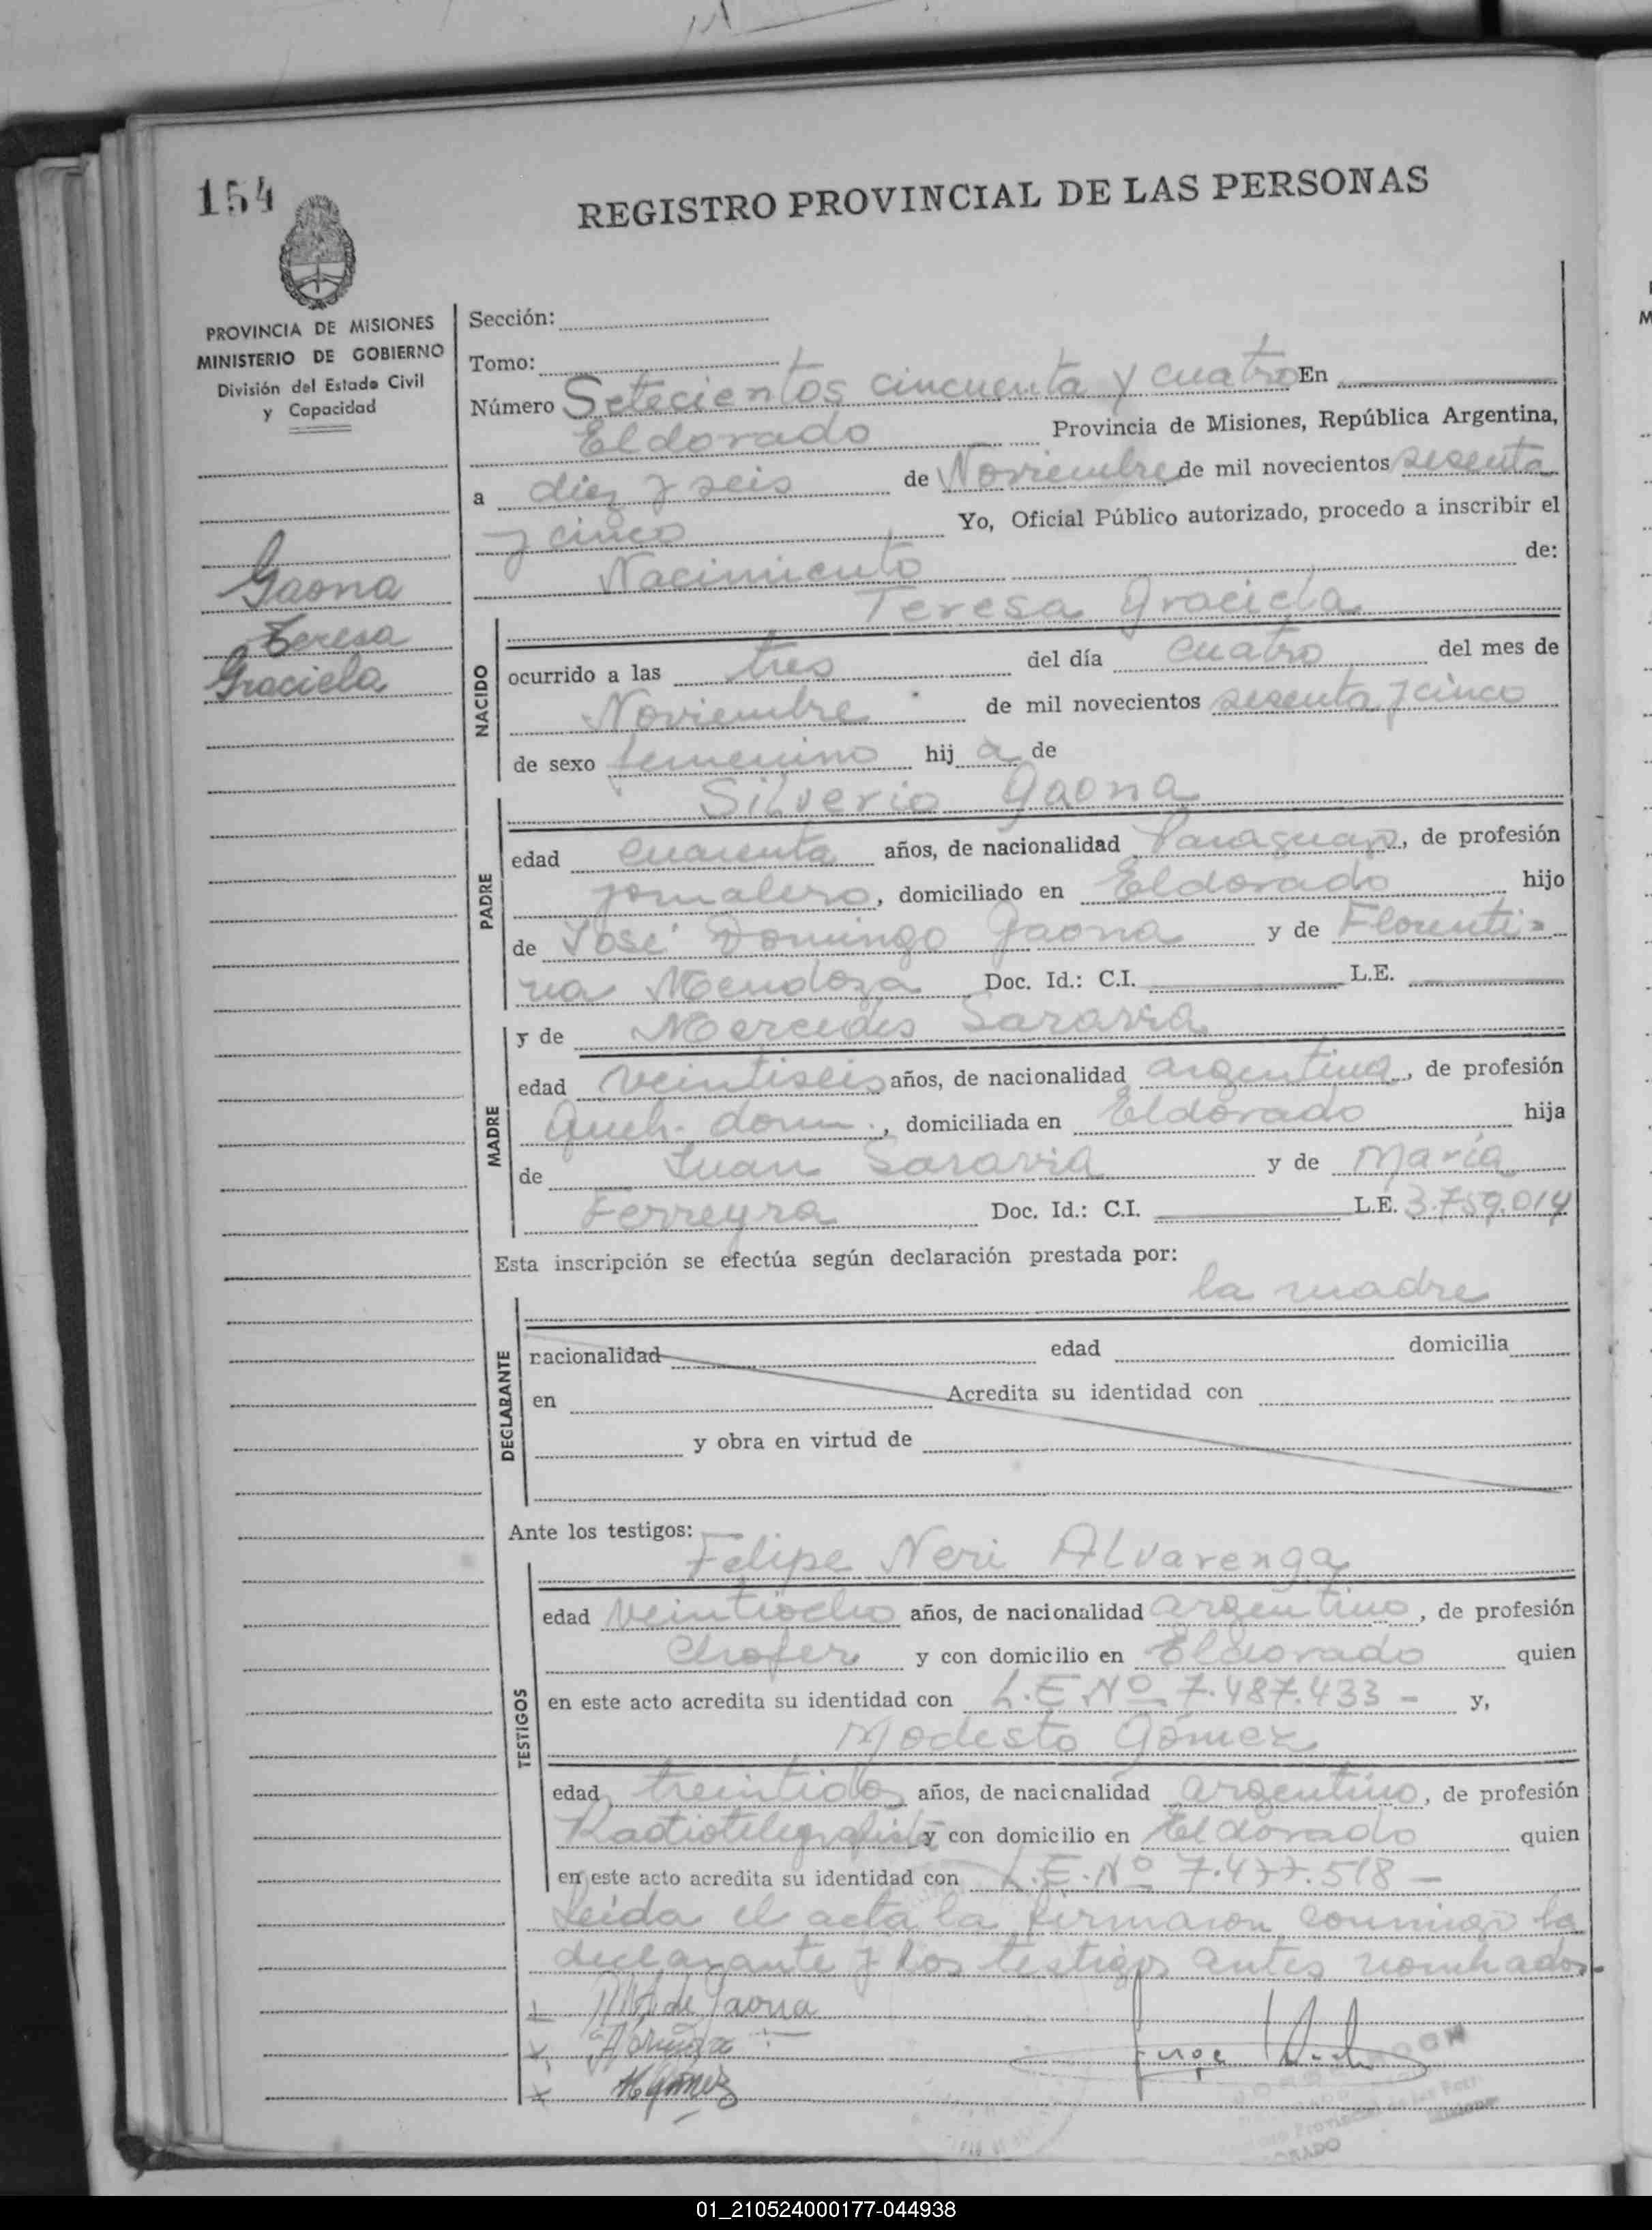 154
REGISTRO PROVINCIAL DE LAS PERSONAS
PROVINCIA DE MISIONES
MINISTERIO DE GOBIERNO
División del Estado Civil
y Capacidad
Gaona
Teresa
Graciela
Sección:
Tomo:
Número Setecientos cincuenta y cuatro En
Eldorado Provincia de Misiones, República Argentina,
a diez y seis de Noviembre de mil novecientos sesenta
y cinco Yo, Oficial Público autorizado, procedo a inscribir el
Nacimiento de:
Teresa Graciela
NACIDO
ocurrido a las tres del día cuatro del mes de
Noviembre de mil novecientos sesenta y cinco
de sexo femenino hij a de
Silverio Gaona
PADRE
edad cuarenta años, de nacionalidad Paraguayo, de profesión
jornalero, domiciliado en Eldorado hijo
de José Domingo Gaona y de Florenti-
na Mendoza Doc. Id.: C.I. L.E.
y de Mercedes Saravia
MADRE
edad veintiseis años, de nacionalidad argentina, de profesión
queh. dom., domiciliada en Eldorado hija
de Juan Saravia y de María
Ferreyra Doc. Id.: C.I. L.E. 3.759.014
Esta inscripción se efectúa según declaración prestada por:
la madre
DECLARANTE
nacionalidad edad domicilia
en Acredita su identidad con
y obra en virtud de
Ante los testigos:
Felipe Neri Alvarenga
TESTIGOS
edad veintiocho años, de nacionalidad argentino, de profesión
Chofer y con domicilio en Eldorado quien
en este acto acredita su identidad con L.E Nº 7.487.433 - y,
Modesto Gómez
edad treintidos años, de nacionalidad argentino, de profesión
Radiotelegrafista y con domicilio en Eldorado quien
en este acto acredita su identidad con L.E.Nº 7.477.518 -
Leida el acta la firmaron conmigo la
declarante y los testigos antes nombrados-
de Gaona
MGómez
Jorge
01_210524000177-044938